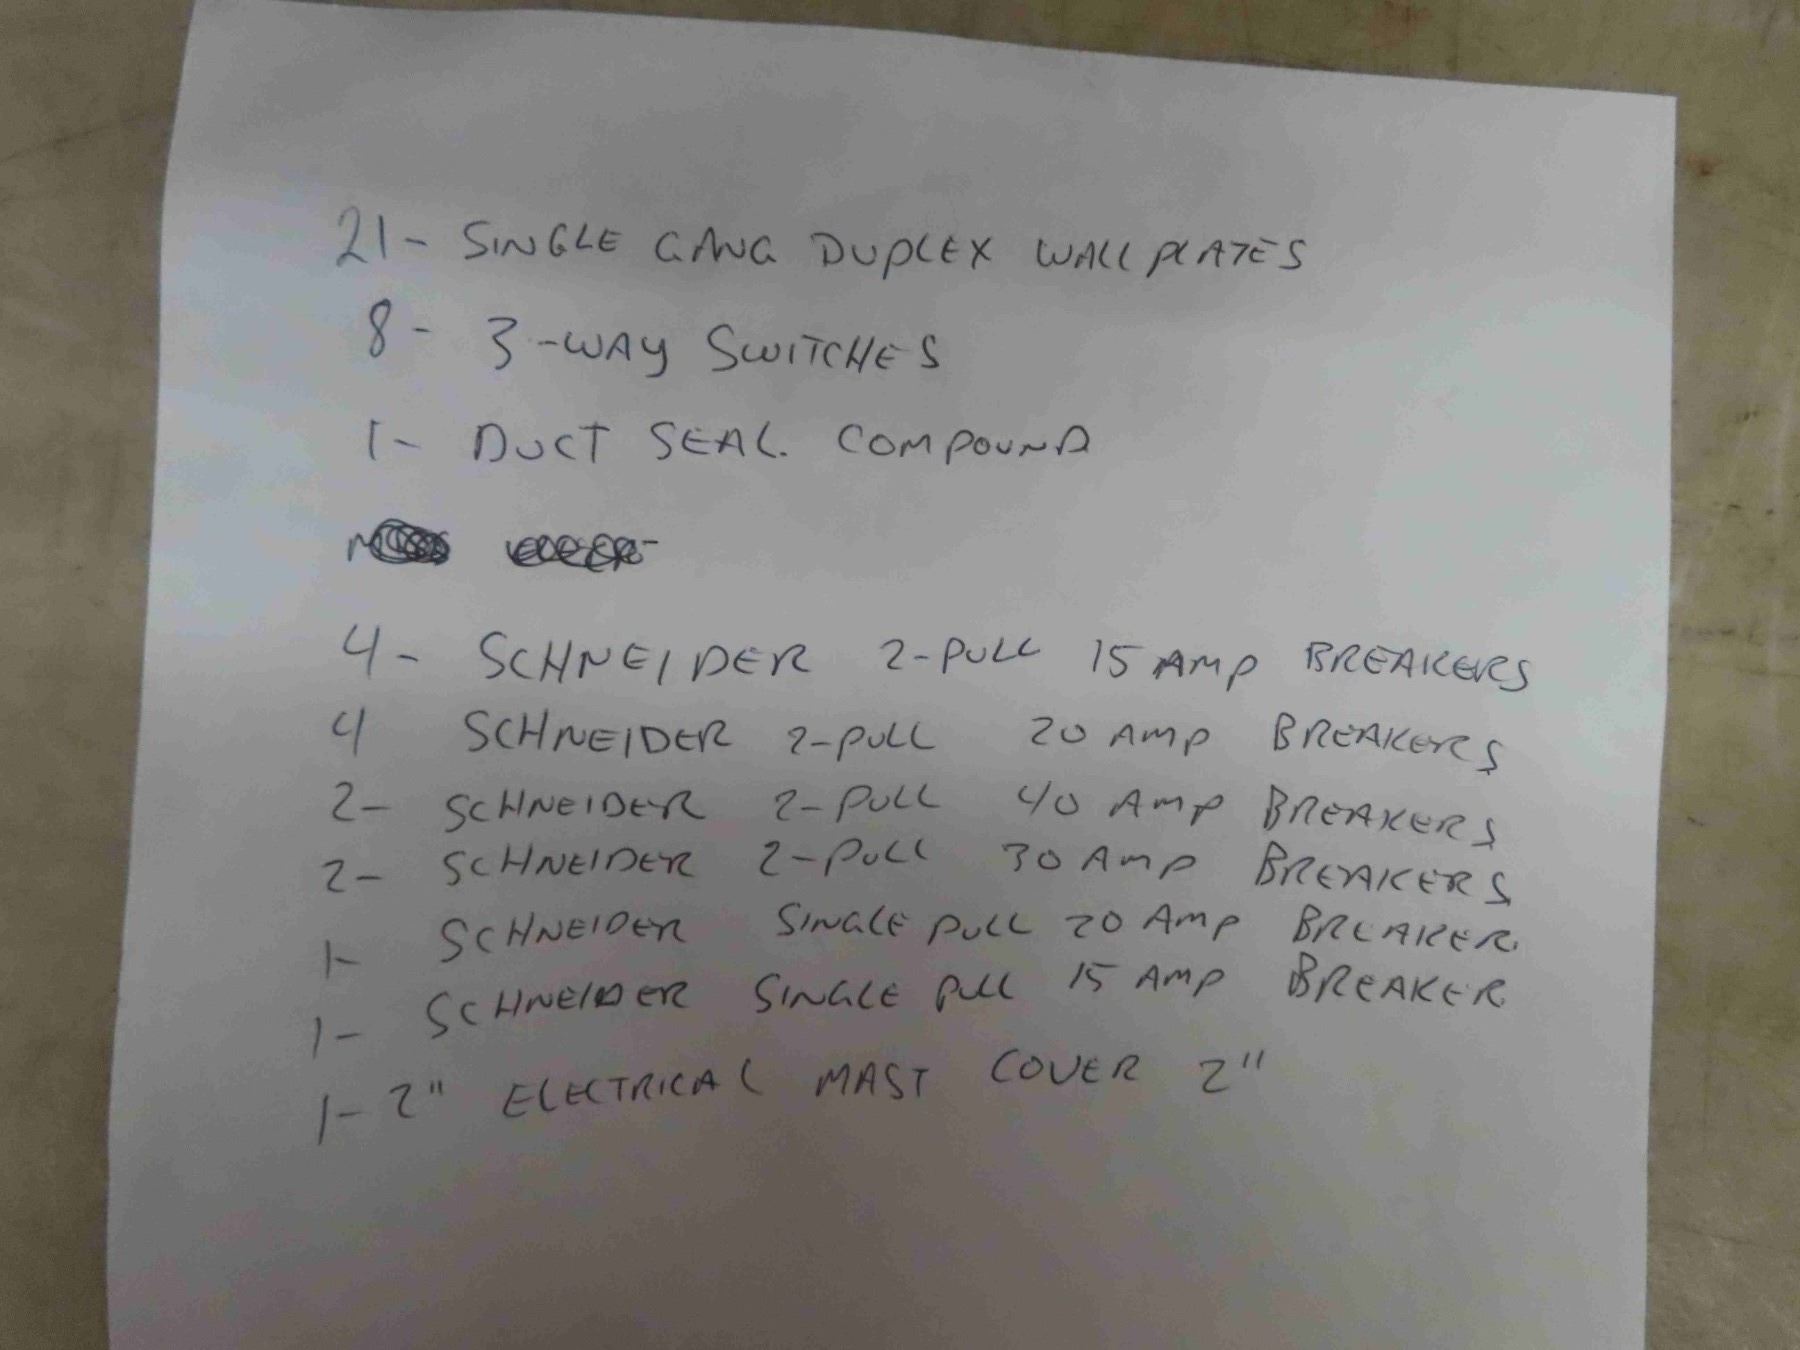 21- SINGLE GANG DUPLEX WALL PLATES
8- 3-WAY SWITCHES
1- DUCT SEAL. COMPOUND
4- SCHNEIDER 2-PULL 15 AMP BREAKERS
4 SCHNEIDER 2-PULL 20 AMP BREAKERS
2- SCHNEIDER 2-PULL 40 AMP BREAKERS
2- SCHNEIDER 2-PULL 30 AMP BREAKERS
1- SCHNEIDER SINGLE PULL 20 AMP BREAKER
1- SCHNEIDER SINGLE PULL 15 AMP BREAKER
1- 2" ELECTRICAL MAST COVER 2"